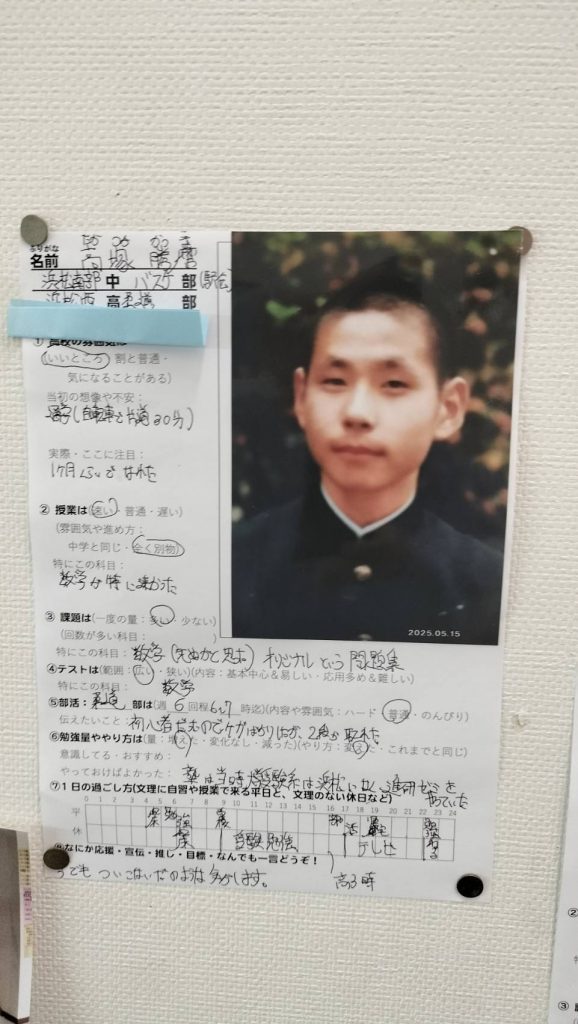 ふりがな たか つか かつ ま
名前 高塚
浜松南部 中 バスケ 部(駅伝)
浜松西 高 柔道 部
① 高校の雰囲気は
(いいところ 割と普通・
気になることがある)
当初の想像や不安:
通学(自転車で片道30分)
実際・ここに注目:
1ヶ月くらいでなれた
② 授業は(速い・普通・遅い)
(雰囲気や進め方:
中学と同じ・全く別物)
特にこの科目:
数学が特に速かった
③ 課題は(一度の量:多い・少ない)
(回数が多い科目: )
特にこの科目: 数学(死ぬかと思った) オリジナルという問題集
④テストは(範囲:広い・狭い)(内容:基本中心&易しい・応用多め&難しい)
特にこの科目: 数学
⑤部活:柔道 部は(週 6 回程 6〜7 時迄)(内容や雰囲気:ハード・普通・のんびり)
伝えたいこと:初心者だったのでケガばかりしたが、2段が取れた
⑥勉強量ややり方は(量:増えた・変化なし・減った)(やり方:変えた・これまでと同じ)
意識してる・おすすめ:
やっておけばよかった:
⑦1日の過ごし方(文理に自習や授業で来る平日と、文理のない休日など)
0 1 2 3 4 5 6 7 8 9 10 11 12 13 14 15 16 17 18 19 20 21 22 23 24
平
休 自習 勉強 テレビ
⑧なにか応援・宣伝・推し・目標・なんでも一言どうぞ!
でも ついこないだのような気がします。 高3時
2025.05.15
②
③